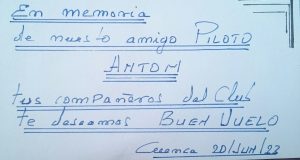 En memoria
de nuesto amigo PILOTO
ANTONI
tus compañeros del Club
te deseamos BUEN VUELO
Cuenca 20/JUN/23